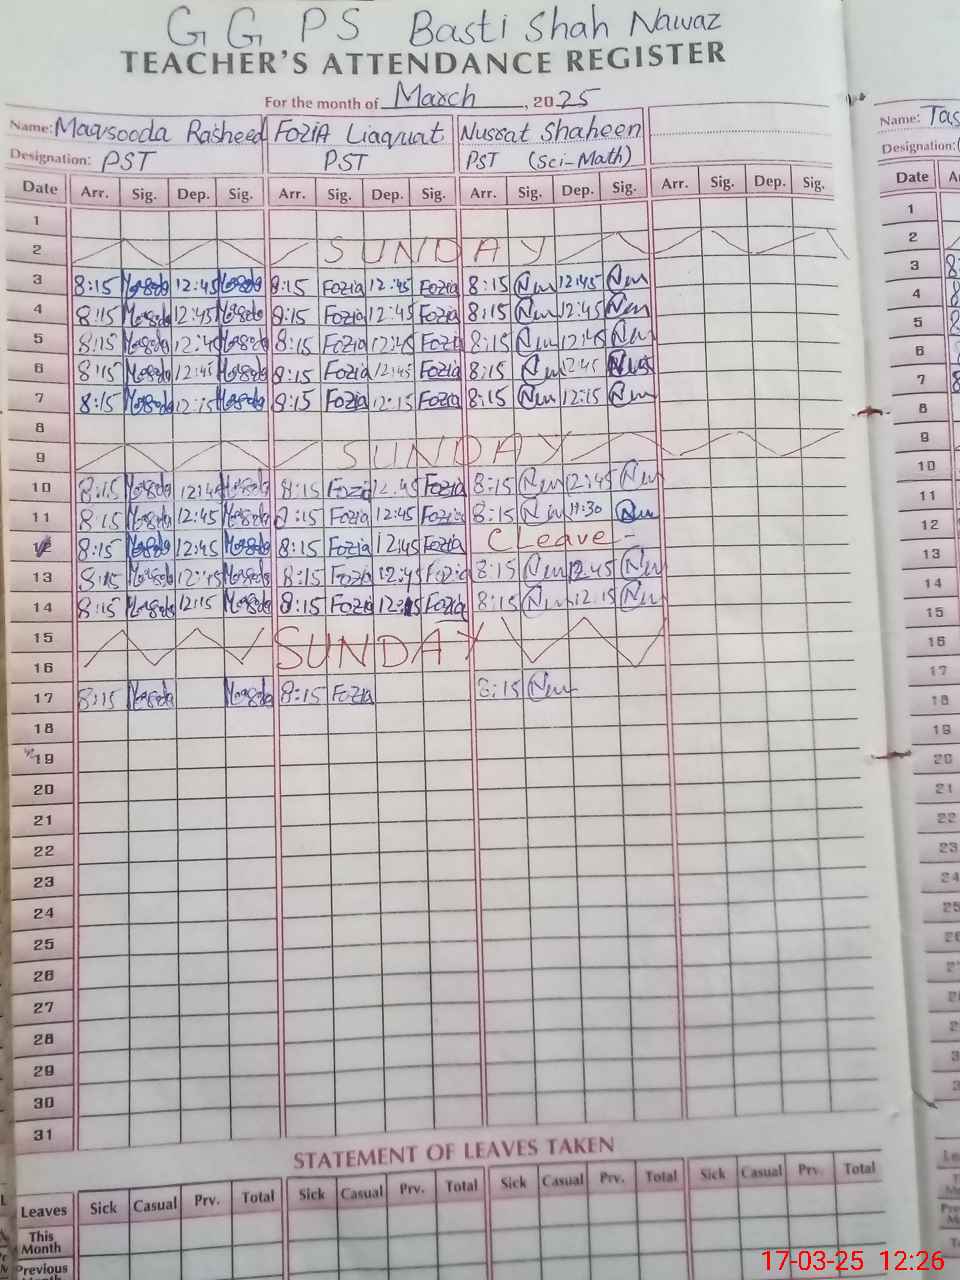 G G P S Basti Shah Nawaz
TEACHER'S ATTENDANCE REGISTER
For the month of March, 2025
Name: Maqsooda Rasheed FoziA Liaquat Nusrat Shaheen
Designation: PST PST PST (Sci-Math)
Date Arr. Sig. Dep. Sig. Arr. Sig. Dep. Sig. Arr. Sig. Dep. Sig. Arr. Sig. Dep. Sig.
1
2 SUNDAY
3 8:15 12:45 8:15 Fozia 12:45 Fozia 8:15 12:45
4 8:15 12:45 8:15 Fozia 12:45 Fozia 8:15 12:45
5 8:15 12:45 8:15 Fozia 12:45 Fozia 8:15 12:45
6 8:15 12:45 8:15 Fozia 12:45 Fozia 8:15 12:45
7 8:15 12:15 8:15 Fozia 12:15 Fozia 8:15 12:15
8
9 SUNDAY
10 8:15 12:45 8:15 Fozia 12:45 Fozia 8:15 12:45
11 8:15 12:45 8:15 Fozia 12:45 Fozia 8:15 11:30
12 8:15 12:45 8:15 Fozia 12:45 Fozia C Leave -
13 8:15 12:45 8:15 Fozia 12:45 Fozia 8:15 12:45
14 8:15 12:15 8:15 Fozia 12:15 Fozia 8:15 12:15
15
16 SUNDAY
17 8:15 8:15 Fozia 8:15
18
19
20
21
22
23
24
25
26
27
28
29
30
31
STATEMENT OF LEAVES TAKEN
Leaves Sick Casual Prv. Total Sick Casual Prv. Total Sick Casual Prv. Total Sick Casual Prv. Total
This Month
Previous
Name: Tas
Designation:
Date
1
2
3
4
5
6
7
8
9
10
11
12
13
14
15
16
17
18
19
20
21
22
23
24
25
26
17-03-25 12:26